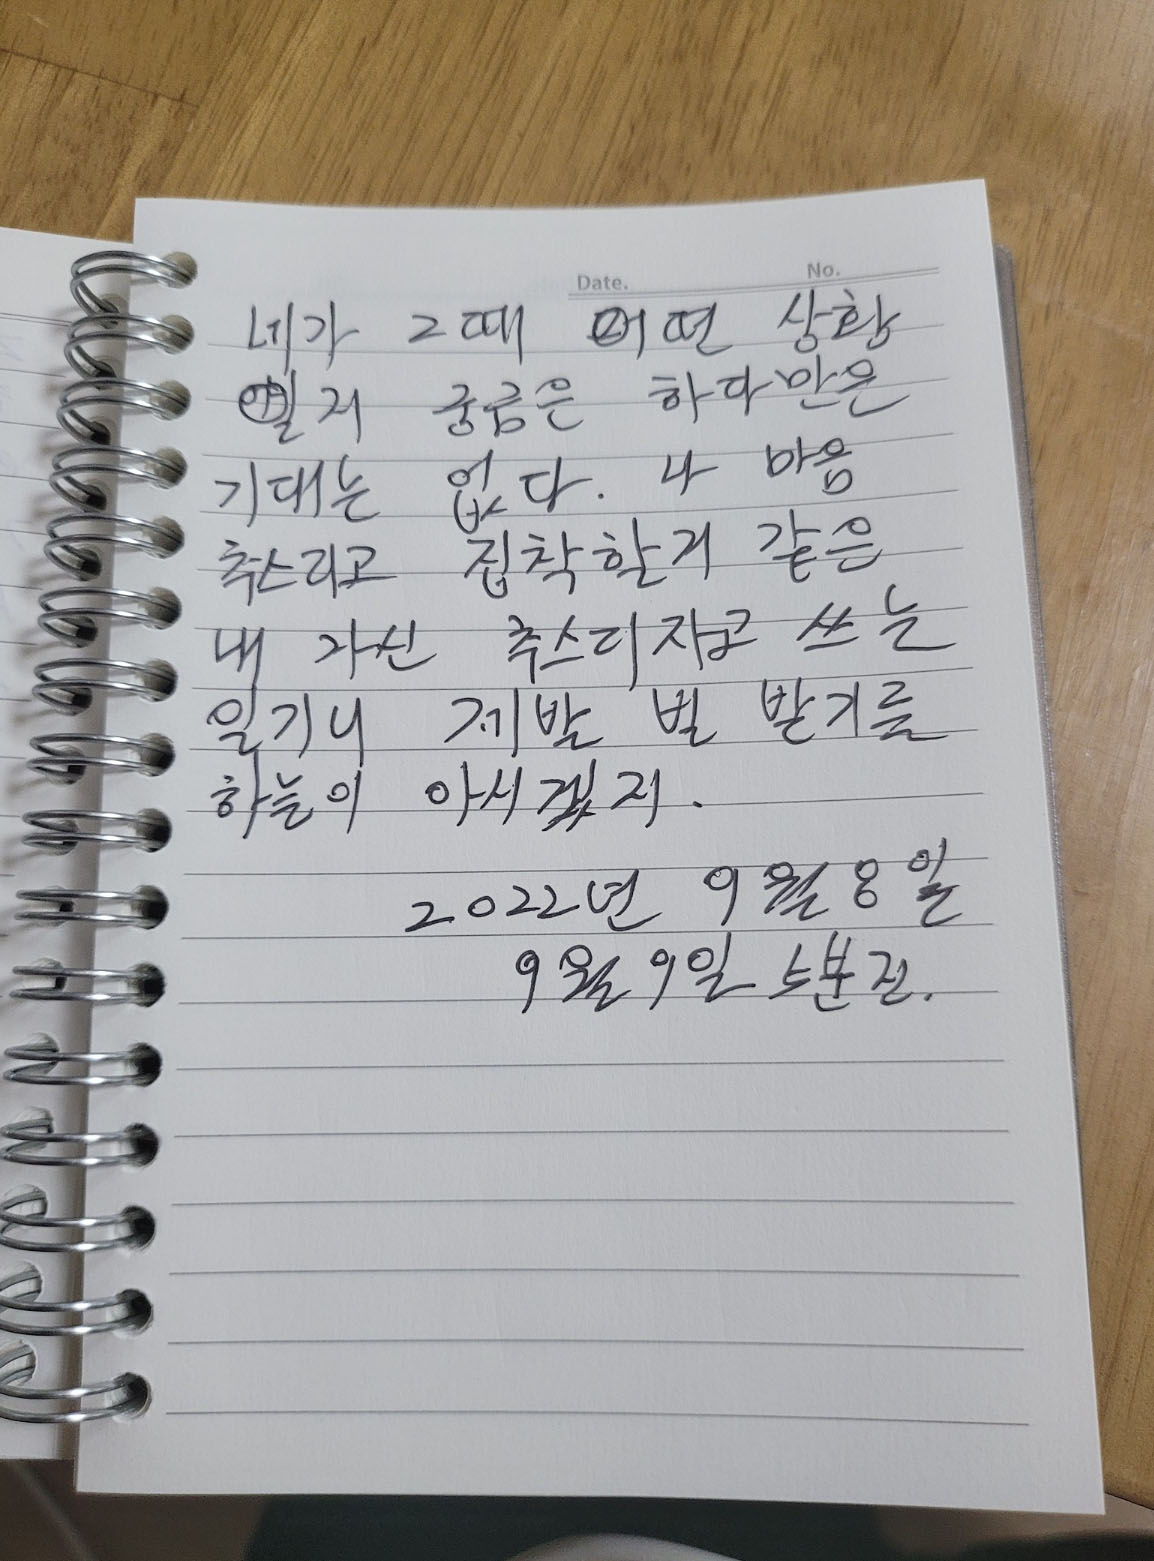 Date. No.
네가 그때 어떤 상황
일지 궁금은 하다만은
기대는 없다. 나 마음
추스리고 집착할거 같은
내 자신 추스리자고 쓰는
일기니 제발 벌 받기를
하늘이 아시겠지.
2022년 9월 8일
9월 9일 5분전.